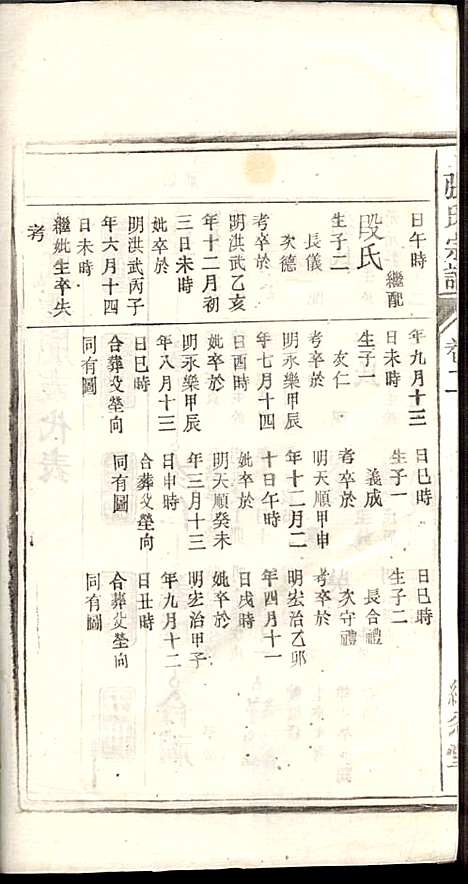 張氏宗譜
卷二
日午時
繼配
段氏
生子二
長儀
次德
考卒於
明洪武乙亥
年十二月初
三日未時
妣卒於
明洪武丙子
年六月十四
日未時
繼妣生卒失
考
年九月十三
日未時
生子一
友仁
考卒於
明永樂甲辰
年七月十四
日酉時
妣卒於
明永樂甲辰
年八月十三
日巳時
合葬父塋向
同有圖
日巳時
生子一
義成
考卒於
明天順甲申
年十二月二
十日午時
妣卒於
明天順癸未
年三月十三
日申時
合葬父塋向
同有圖
日巳時
生子二
長合禮
次守禮
考卒於
明宏治乙卯
年四月十一
日戌時
妣卒於
明宏治甲子
年九月十二
日丑時
合葬父塋向
同有圖